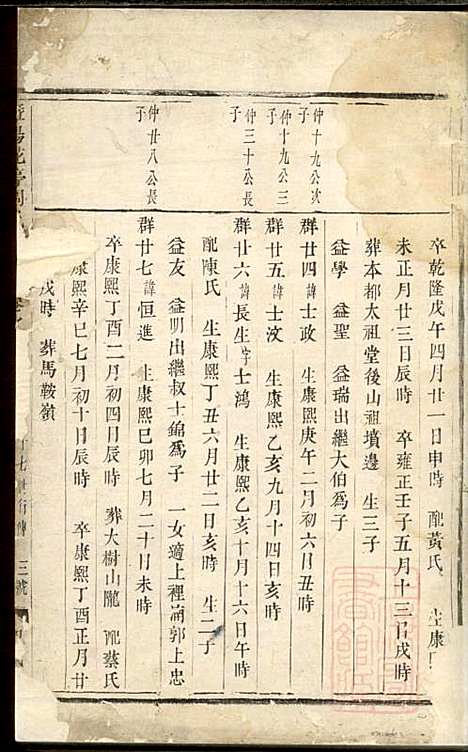 卒乾隆戊午四月廿一日申時 配黃氏 生康
未正月廿三日辰時 卒雍正壬子五月十三日戌時
葬本都太祖堂後山祖墳邊 生三子
益學 益聖 益瑞出繼大伯爲子
仲十九公次子
羣廿四諱士政 生康熙庚午二月初六日丑時
仲十九公三子
羣廿五諱士汶 生康熙乙亥九月十四日亥時
仲三十公長子
羣廿六諱長生字士鴻 生康熙乙亥十月十六日午時
配陳氏 生康熙丁丑六月廿二日亥時 生二子
益友 益明出繼叔士錦爲子 一女適上裡湳郭上忠
仲廿八公長子
羣廿七諱恒進 生康熙己卯七月二十日未時
卒康熙丁酉二月初四日辰時 葬大樹山隴 配蔡氏
康熙辛巳七月初十日辰時 卒康熙丁酉正月廿
戌時 葬馬鞍嶺
十七世行傳 三號